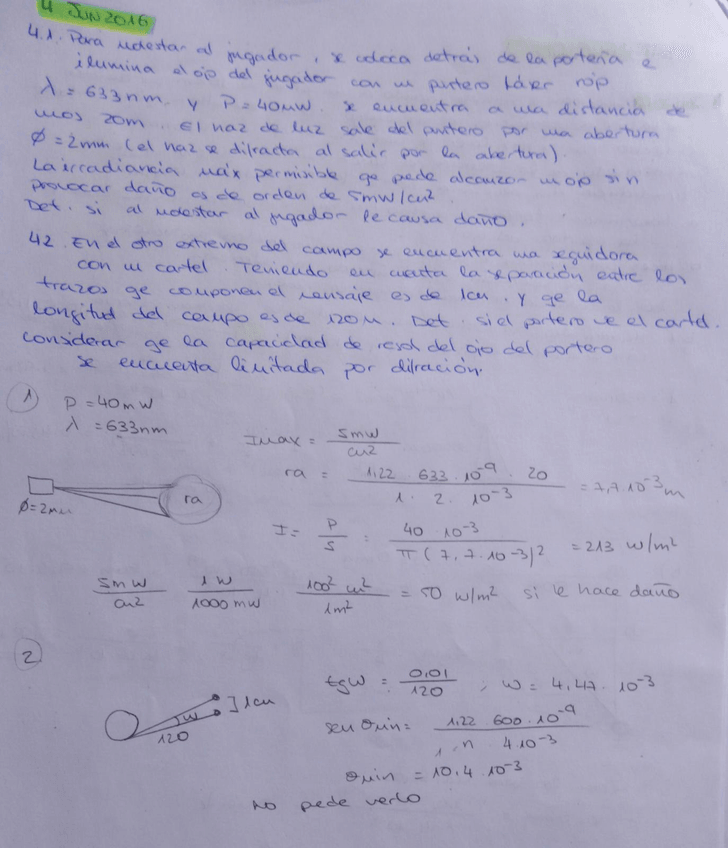 4 JUN 2016
4.1. Para molestar al jugador, se coloca detrás de la portería e
ilumina el ojo del jugador con un puntero láser rojo
λ = 633nm y P = 40mW. se encuentra a una distancia de
unos 20m. El haz de luz sale del puntero por una abertura
Ø = 2mm (el haz se difracta al salir por la abertura).
La irradiancia máx permisible qe puede alcanzar un ojo sin
provocar daño es de orden de 5mW/cm².
Det. si al molestar al jugador le causa daño.
42. En el otro extremo del campo se encuentra una seguidora
con un cartel. Teniendo en cuenta la separación entre los
trazos qe componen el mensaje es de 1cm. y qe la
longitud del campo es de 120m. Det. si el portero ve el cartel.
considerar qe la capacidad de resol del ojo del portero
se encuentra limitada por difración.
1) P = 40mW
λ = 633nm
Imax = 5mW / cm²
ra = 1,22 · 633 · 10⁻⁹ · 20 / 1 · 2 · 10⁻³ = 7,7·10⁻³m
ra
Ø=2mm
I = P/S = 40 · 10⁻³ / π(7,7·10⁻³)² = 213 W/m²
5mW/cm² 1W/1000mW 100² cm²/1m² = 50 W/m² si le hace daño
2
tgω = 0,01/120 ; ω = 4,47 · 10⁻³
1cm
ω
120
sen θmin = 1,22 600 · 10⁻⁹ / 1,n 4·10⁻³
θmin = 10,4 · 10⁻³
No puede verlo